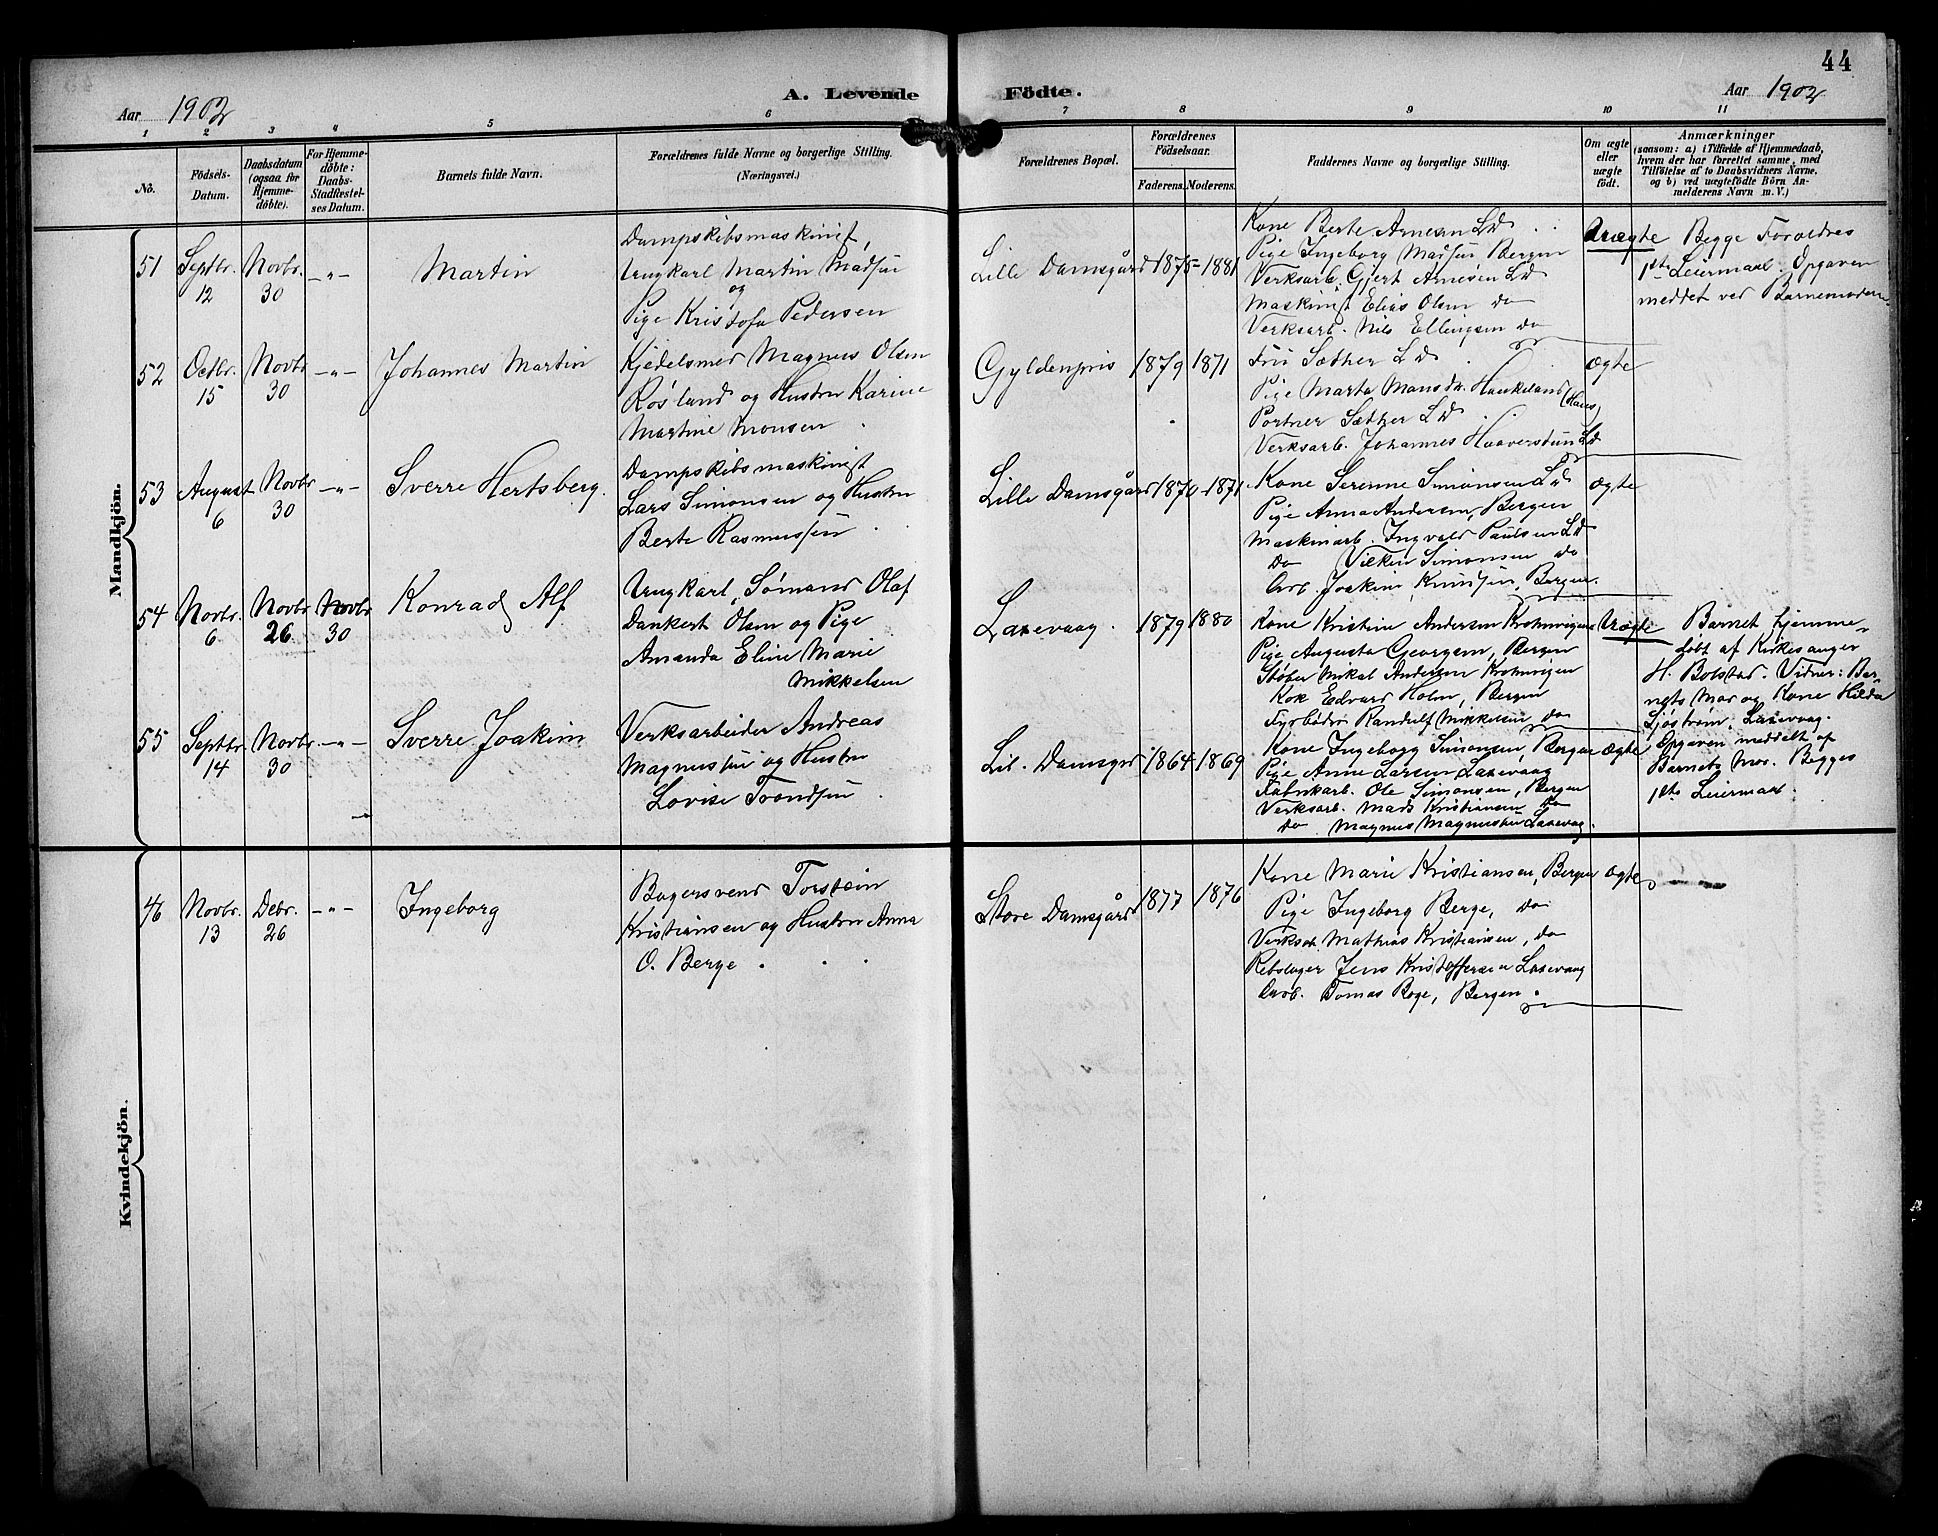 44
Aar 1902
A. Levende Födte.
Aar 1902
1 2 3 4 5 6 7 8 9 10 11
No.
Födsels-
Datum.
Daabsdatum
(ogsaa for
Hjemme-
döbte).
For Hjemme-
döbte:
Daabs-
Stadfæstel-
ses Datum.
Barnets fulde Navn.
Forældrenes fulde Navne og borgerlige Stilling.
(Næringsvei.)
Forældrenes Bopæl.
Forældrenes
Födselsaar.
Faderens. Moderens.
Faddernes Navne og borgerlige Stilling.
Om ægte
eller
uægte
födt.
Anmærkninger
(saasom: a) i Tilfælde af Hjemmedaab,
hvem der har forrettet samme, med
Tilföielse af to Daabsvidners Navne,
og b) ved uægtefödte Börn An-
melderens Navn m. V.)
Mandkjön.
51
Septbr.
12
Novbr.
30
-"-
Martin
Dampskibsmaskinist,
Ungkarl Martin Madsen
og
Pige Kristofa Pedersen
Lille Damsgård 1875 - 1881
Kone Berte Arnesen Ld
Pige Ingeborg Madsen Bergen
Verksarb. Gjert Arnesen Ld
Maskinist Elias Olsen do
Verksarb. Nils Ellingsen do
Uægte
Begge Forældres
1ste Leiermaal. Opgaven
meddet ved Barnemoderen.
52
Octbr.
15
Novbr
30
-"-
Johannes Martin
Kjedelsmed Magnus Olsen
Røsland og Hustru Karine
Martine Monsen
Gyldenpris 1879 1871
Fru Sæther Ld
Pige Marta Mansdr. Haukeland (Haus)
Portner Sæther Ld
Verksarb. Johannes Haaverstun Ld
Ægte
53
August
6
Novbr
30
-"-
Sverre Hertsberg.
Dampskibsmaskinist
Lars Simonsen og Hustru
Berte Rasmussen
Lille Damsgård 1870 - 1871
Kone Serenne Simonsen Ld
Pige Anna Andersen, Bergen
Maskinarb. Ingvald Paulsen Ld
Do Vilken Simonsen do
Arb. Joakim Knudsen, Bergen.
Ægte
54
Novbr.
6
Novbr
26
Novbr
30
Konrad Alf
Ungkarl, Sømand Olaf
Dankert Olsen og Pige
Amanda Eline Marie
Mikkelsen
Laxevaag. 1879 1880
Kone Kristine Andersen Krohnvigen
Pige Augusta Georgsen, Bergen
Støber Mikal Andersen Krohnvigen
Kok Edvard Holm, Bergen
Fyrbøder Randulf Mikkelsen do
Uægte
Barnet hjemme-
døbt af Kirkesanger
H. Bolstad. Vidner: Bar-
nets Mor og Kone Hilda
Sjöström, Laxevaag.
Opgaven meddelt af
Barnets Mor. Begges
1ste Leiermaal.
55
Septbr
14
Novbr
30
-"-
Sverre Joakim
Verksarbeider Andreas
Magnussen og Hustru
Lovise Trondsen
Lil. Damsgrd 1864 - 1869
Kone Ingeborg Simonsen, Bergen
Pige Anne Larsen Laxevaag
Fabrikarb. Ole Simonsen, Bergen
Verksarb. Mads Kristiansen do
do Magnus Magnussen Laxevaag.
Ægte
Kvindekjön.
46
Novbr.
13
Debr.
26
-"-
Ingeborg
Bagersvend Torstein
Kristiansen og Hustru Anna
O. Berge
Store Damsgård 1877 1876
Kone Marie Kristiansen, Bergen
Pige Ingeborg Berge, do
Verksarb. Mathias Kristiansen, do
Rebslager Jens Kristoffersen Laxevaag
Arb. Tomas Roge, Bergen.
Ægte